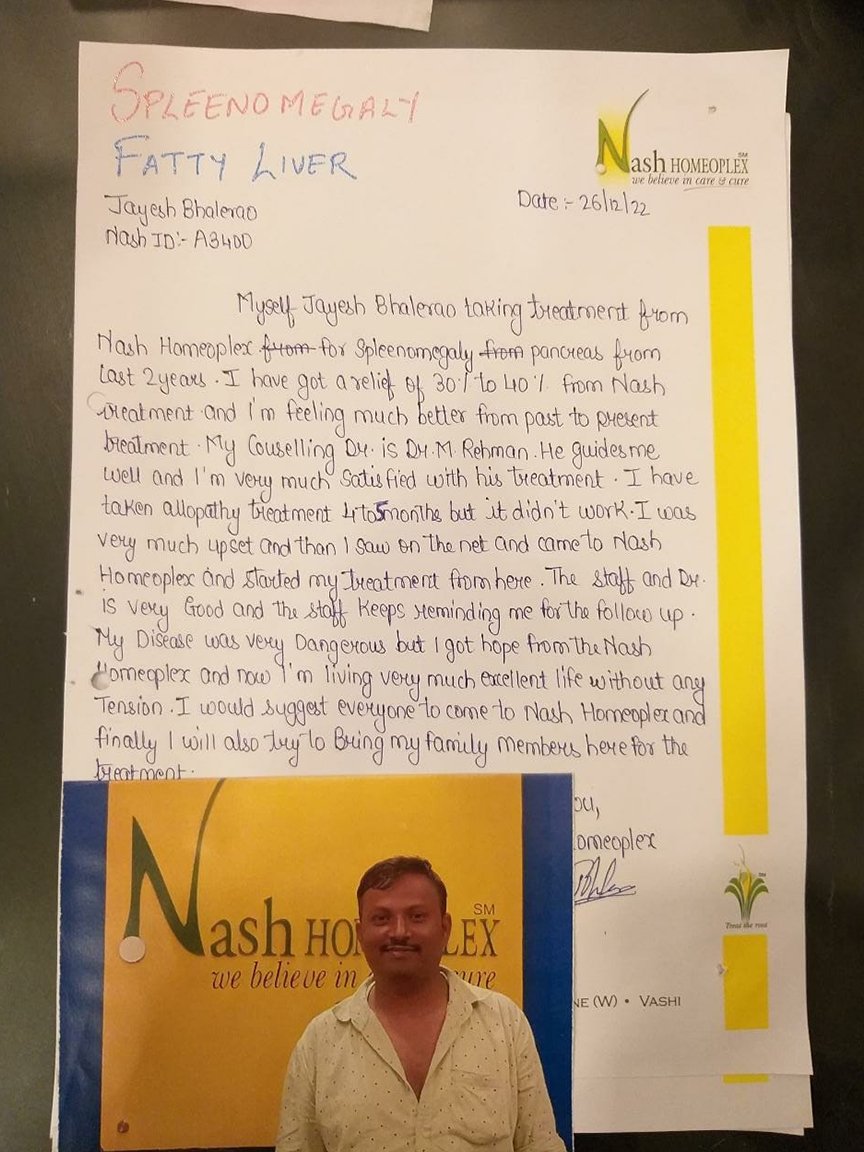 SPLEENOMEGALY
FATTY LIVER
Nash HOMEOPLEX SM
we believe in care & cure
Jayesh Bhalerao
Date :- 26/12/22
Nash ID:- A3400
Myself Jayesh Bhalerao taking treatment from
Nash Homeoplex from for Spleenomegaly from pancreas from
Last 2 years. I have got a relief of 30% to 40% from Nash
treatment and I'm feeling much better from past to present
treatment. My Couselling Dr. is Dr. M. Rehman. He guides me
well and I'm very much satisfied with his treatment. I have
taken allopathy treatment 4 to 5 months but it didn't work. I was
very much upset and than I saw on the net and came to Nash
Homeoplex and started my treatment from here. The staff and Dr.
is very Good and the staff keeps reminding me for the follow up.
My Disease was very Dangerous but I got hope from the Nash
Homeoplex and now I'm living very much excellent life without any
Tension. I would suggest everyone to come to Nash Homeoplex and
finally I will also try to Bring my family members here for the
treatment.
ou,
omeoplex
Treat the root
NE (W) • VASHI
Nash HOMEOPLEX SM
we believe in cure